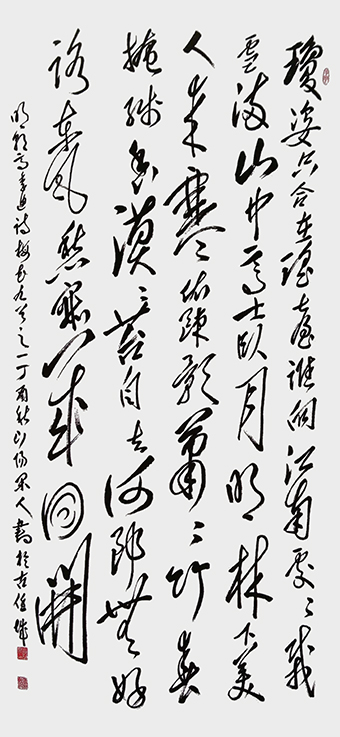 瓊姿只合在瑶臺誰向江南處〻栽
雪滿山中高士臥月明林下美
人来寒依疎影蕭〻竹春
掩殘香漠〻苔自去何郎無好
詠東風愁寂幾回開
明朝高季迪詩梅花九首之一丁酉秋人書於古任城